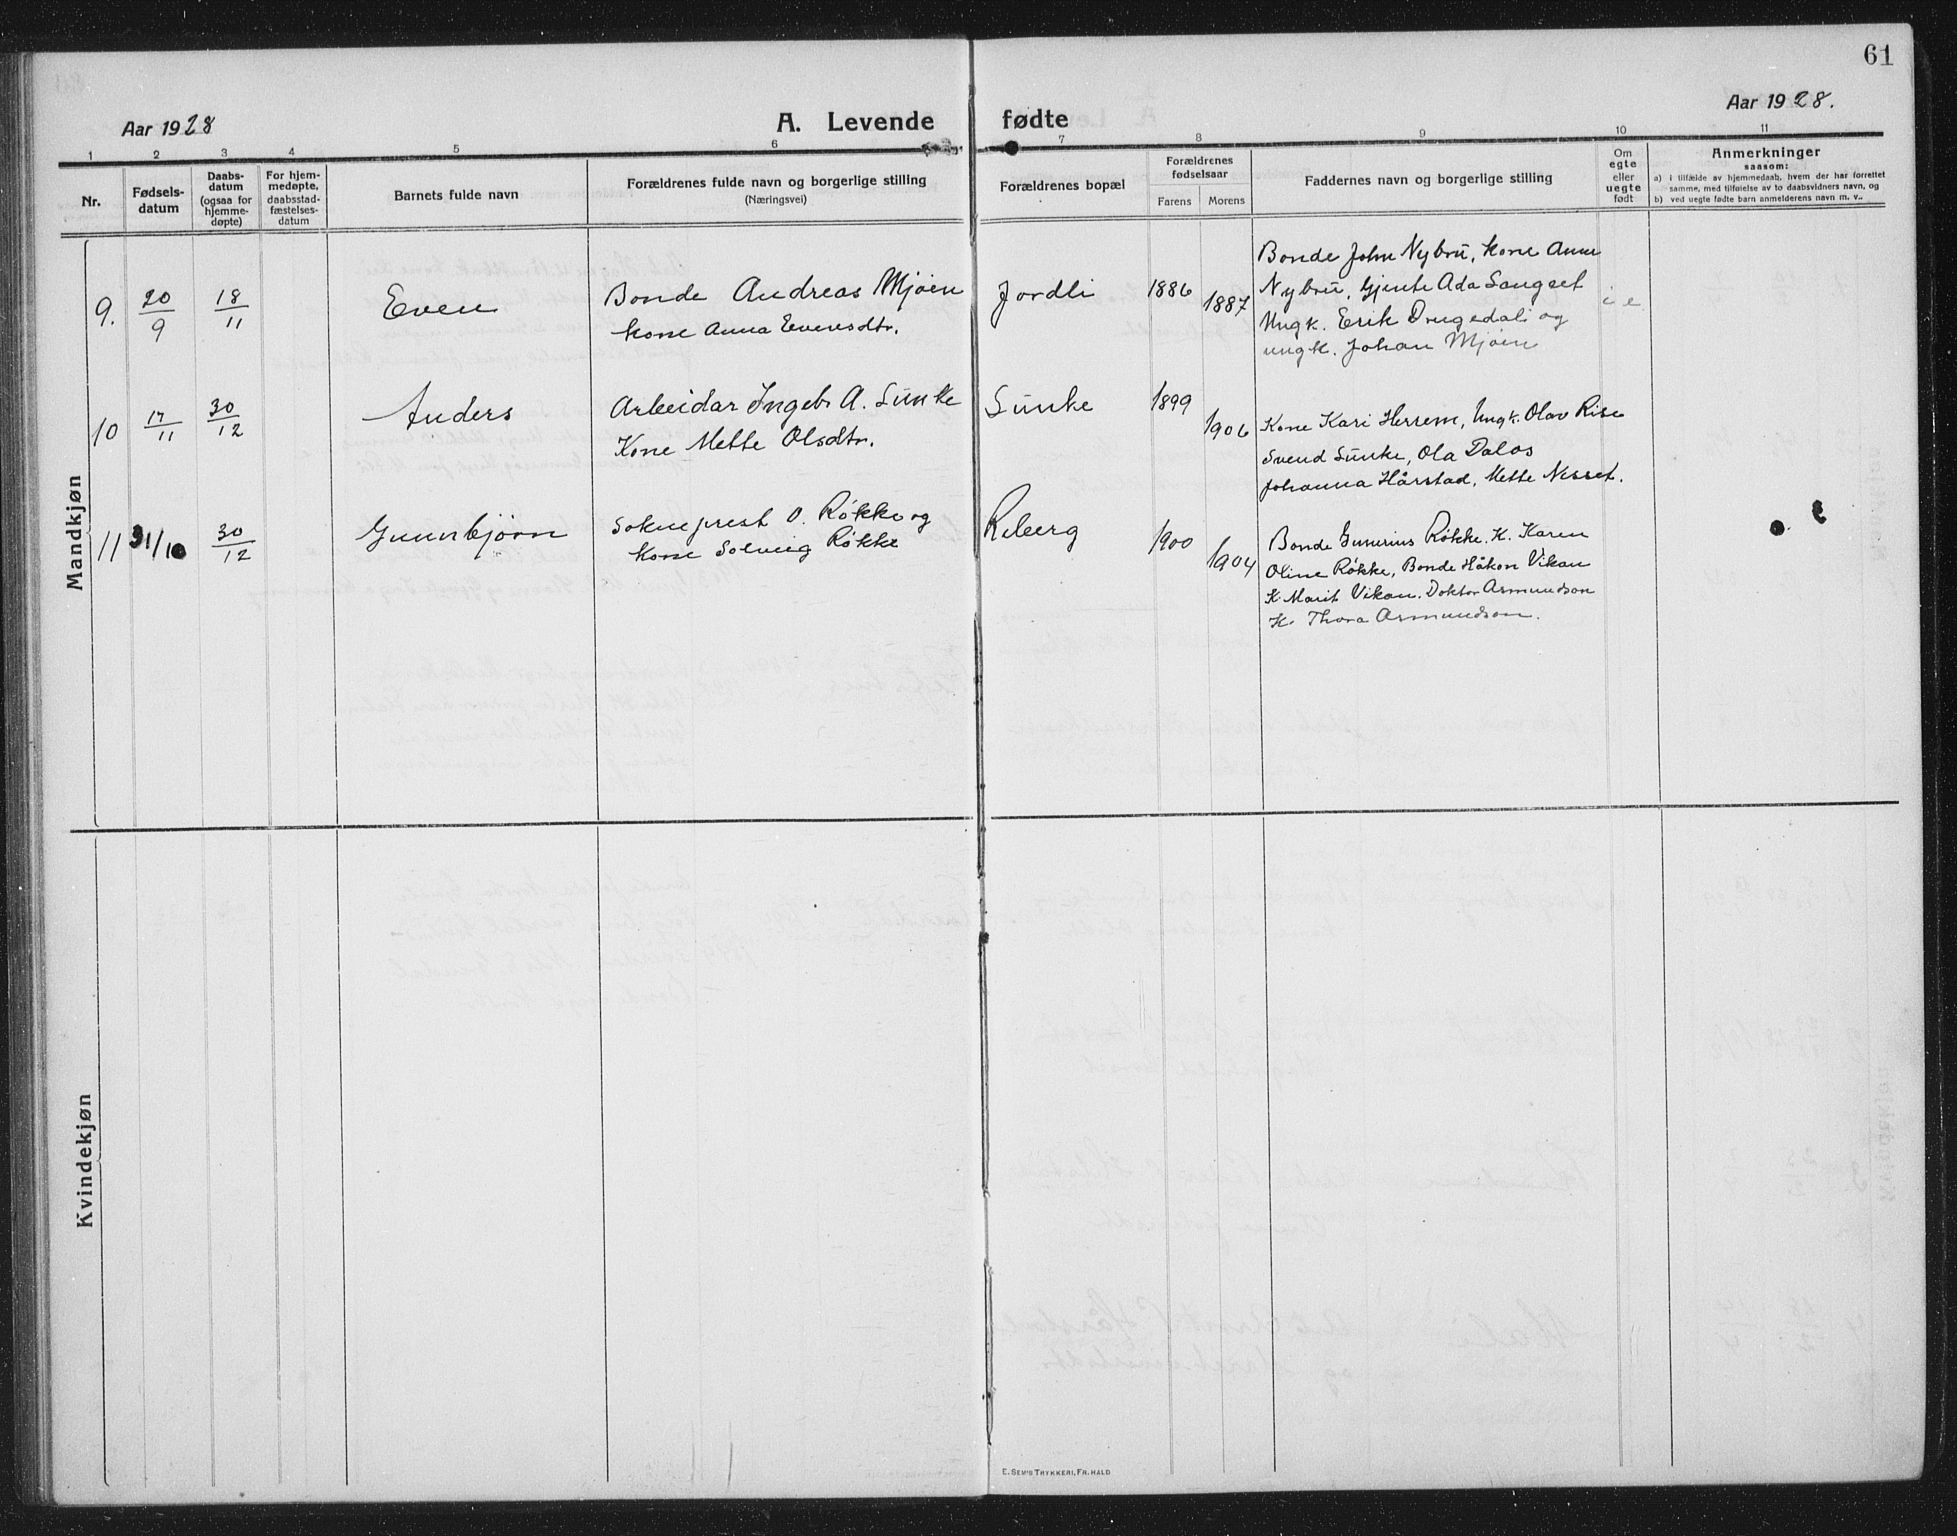 61
Aar 1928
A. Levende fødte
Aar 1928.
1 2 3 4 5 6 7 8 9 10 11
Nr.
Fødsels-
datum
Daabs-
datum
(ogsaa for
hjemme-
døpte)
For hjem-
medøpte,
daabsstad-
fæstelses-
datum
Barnets fulde navn
Forældrenes fulde navn og borgerlige stilling
(Næringsvei)
Forældrenes bopæl
Forældrenes
fødselsaar
Farens Morens
Faddernes navn og borgerlige stilling
Om
egte
eller
uegte
født
Anmerkninger
saasom:
a) i tilfælde av hjemmedaab, hvem der har forrettet
samme, med tilføielse av to daabsvidners navn, og
b) ved uegte fødte barn anmelderens navn m. v..
Mandkjøn
9. 20/9 18/11 Even
Bonde Andreas Mjøen
Kone Anna Evensdtr.
Jordli 1886 1887
Bonde John Nybru, Kone Anne
Nybru, Gjente Ada Sangset
Ungk. Erik Drugedali og
ungk. Johan Mjøen
i e
10 17/11 30/12 Anders
Arbeidar Ingebr A. Sunke
Kone Mette Olsdtr.
Sunke 1899 1906
Kone Kari Herrem, Ungk. Olav Rise
Svend Sunke, Ola Dalos
Johanna Hårstad, Mette Nisset.
11 31/10 30/12 Gunnbjørn
Sokneprest O. Røkke og
Kone Solveig Røkke
Reberg 1900 1904
Bonde Gunerius Røkke. K. Karen
Oline Røkke, Bonde Håkon Vikan
K. Marit Vikan. Doktor Asmundson
K. Thora Asmundson.
Kvindekjøn
E. Sem's Trykkeri, Fr. Hald